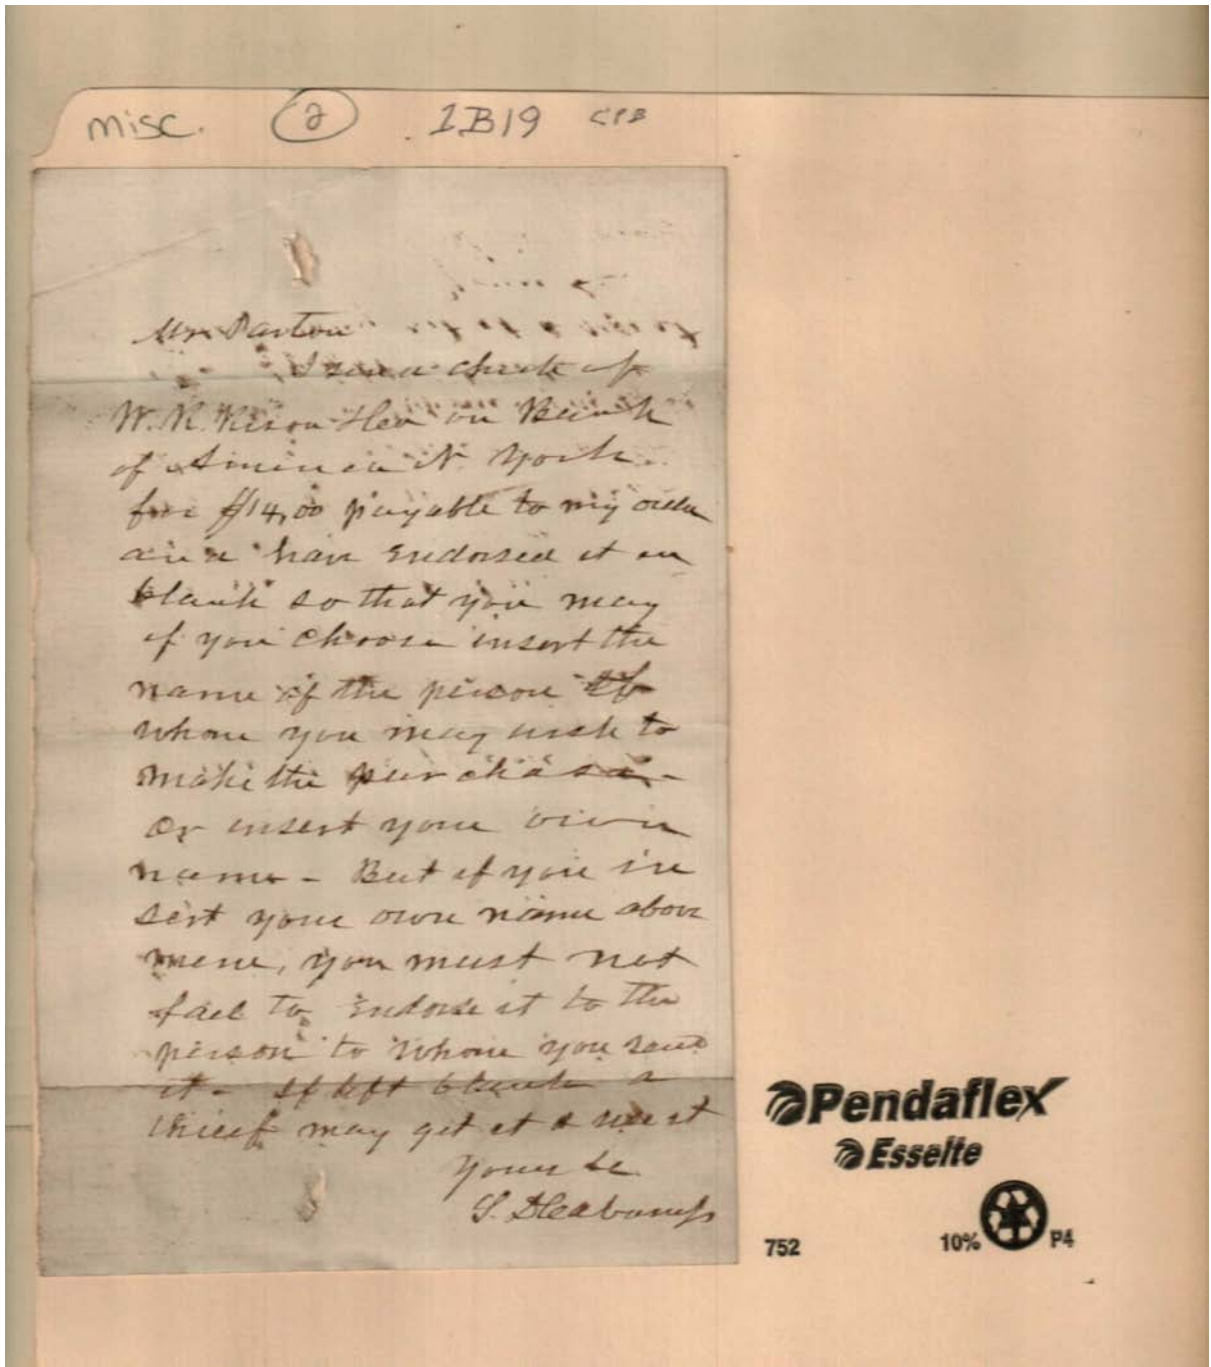 misc. 2 1B19 CPB
Mr Parton
I send a check of
W. R. Rison on Bank
of America N. York
for $14,00 payable to my order
and have Endorsed it in
blank so that you may
if you choose insert the
name of the person of
whom you may wish to
make the purchase -
Or insert your own
name - But if you in
sert your own name above
mine, you must not
fail to Endorse it to the
person to whom you send
it - If left blank a
thief may get it & use it
Yours &c
S. D. Cabaniss
Pendaflex
Esselte
752 10% P4